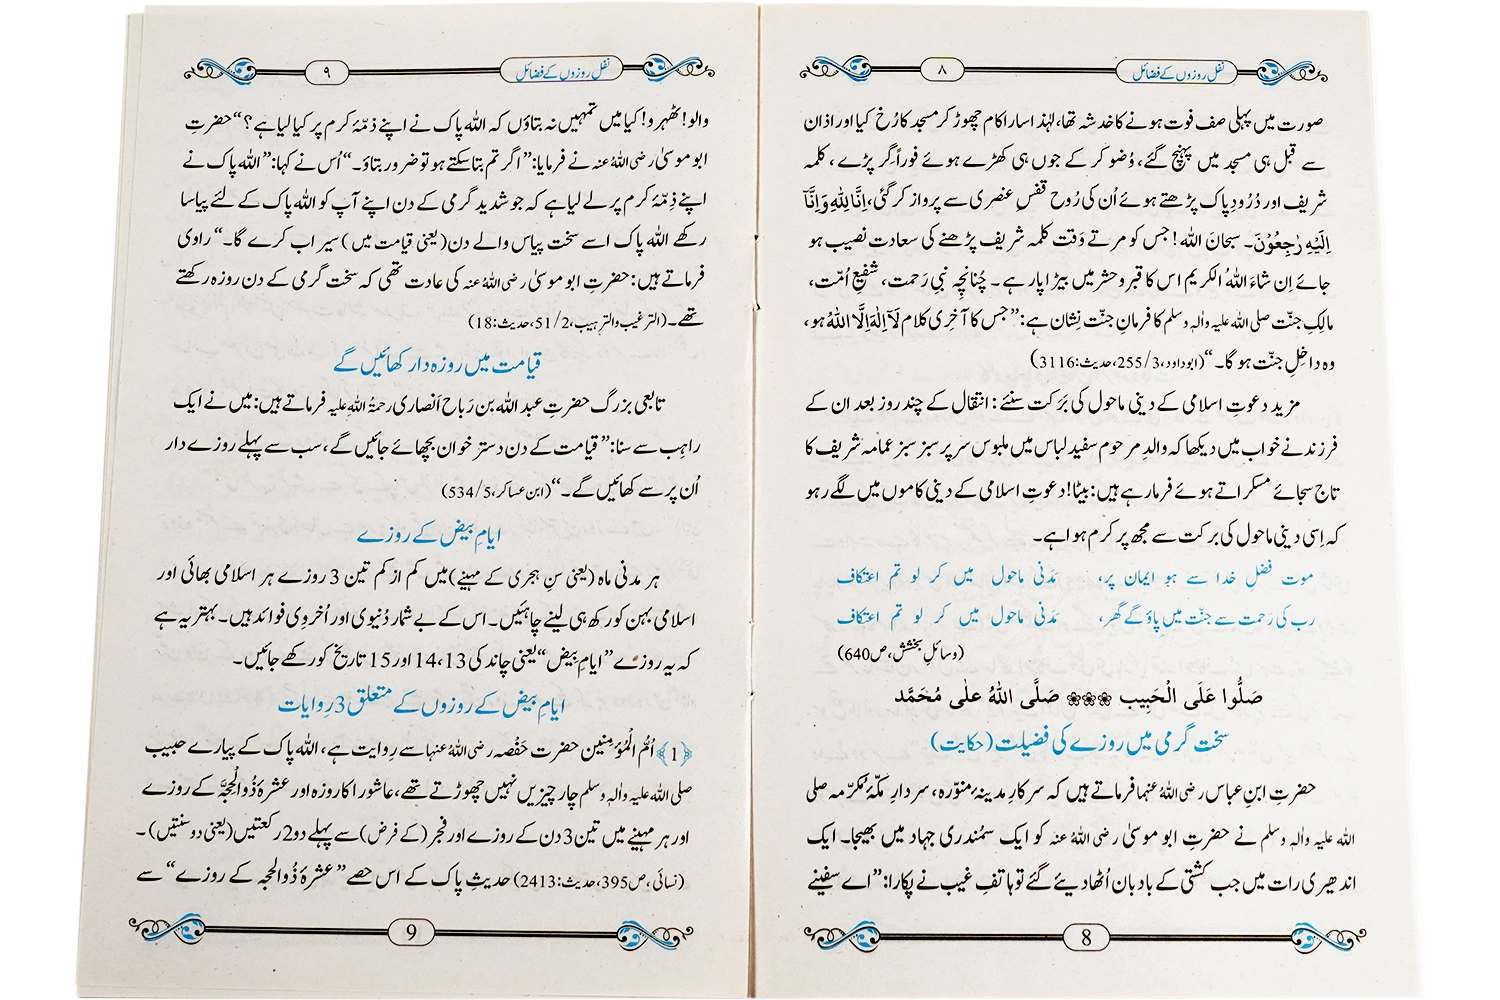 نفل روزوں کے فضائل
۸
صورت میں پہلی صف فوت ہونے کا خدشہ تھا، لہٰذا سارا کام چھوڑ کر مسجد کا رُخ کیا اور اذان
سے قبل ہی مسجد میں پہنچ گئے، وُضو کر کے جوں ہی کھڑے ہوئے فوراً گِر پڑے، کلمہ
شریف اور دُرُودِ پاک پڑھتے ہوئے اُن کی رُوح قفسِ عنصری سے پرواز کر گئی، اِنَّا لِلّٰہِ وَاِنَّاۤ
اِلَیْہِ رٰجِعُوْنَ۔ سبحانَ اللہ! جس کو مرتے وَقت کلمہ شریف پڑھنے کی سعادت نصیب ہو
جائے اِن شاءَ اللہُ الکریم اس کا قبر و حشر میں بیڑا پار ہے۔ چُنانچِہ نبیِ رَحمت، شفیعِ اُمّت،
مالِکِ جنّت صلی اللہ علیہ واٰلہٖ وسلم کا فرمانِ جنّت نِشان ہے: ”جس کا آخِری کلام لَاۤ اِلٰہَ اِلَّا اللہُ ہو،
وہ داخِلِ جنّت ہوگا۔“ (ابوداود، 3/255، حدیث: 3116)
مزید دعوتِ اسلامی کے دینی ماحول کی بَرَکت سنئے: انتقال کے چند روز بعد ان کے
فرزند نے خواب میں دیکھا کہ والدِ مرحوم سفید لباس میں ملبوس سر پر سبز سبز عمامہ شریف کا
تاج سجائے مسکراتے ہوئے فرما رہے ہیں: بیٹا! دعوتِ اسلامی کے دینی کاموں میں لگے رہو
کہ اِسی دینی ماحول کی برکت سے مجھ پر کرم ہوا ہے۔
موت فضلِ خدا سے ہو ایمان پر، مَدَنی ماحول میں کر لو تم اعتکاف
رب کی رَحمت سے جنّت میں پاؤ گے گھر، مَدَنی ماحول میں کر لو تم اعتکاف
(وسائلِ بخشش، ص640)
صَلُّوا عَلَی الْحَبِیب ❀❀❀ صَلَّی اللہُ علٰی مُحَمَّد
سخت گرمی میں روزے کی فضیلت (حکایت)
حضرتِ ابنِ عباس رضی اللہُ عنہما فرماتے ہیں کہ سرکارِ مدینۂ منوّرہ، سردارِ مکّۂ مُکرّمہ صلی
اللہ علیہ واٰلہٖ وسلم نے حضرتِ ابو موسیٰ رضی اللہُ عنہ کو ایک سمُندری جہاد میں بھیجا۔ ایک
اندھیری رات میں جب کشتی کے بادبان اُٹھا دیئے گئے تو ہاتفِ غیب نے پکارا: ”اے سفینے
8
نفل روزوں کے فضائل
۹
والو! ٹھہرو! کیا میں تمہیں نہ بتاؤں کہ اللہ پاک نے اپنے ذمّۂ کرم پر کیا لیا ہے؟“ حضرتِ
ابو موسیٰ رضی اللہُ عنہ نے فرمایا: ”اگر تم بتا سکتے ہو تو ضرور بتاؤ۔“ اُس نے کہا: ”اللہ پاک نے
اپنے ذِمّۂ کرم پر لے لیا ہے کہ جو شدید گرمی کے دن اپنے آپ کو اللہ پاک کے لئے پیاسا
رکھے اللہ پاک اسے سخت پیاس والے دن (یعنی قیامت میں) سیراب کرے گا۔“ راوی
فرماتے ہیں: حضرتِ ابو موسیٰ رضی اللہُ عنہ کی عادت تھی کہ سخت گرمی کے دن روزہ رکھتے
تھے۔ (الترغیب والترہیب، 2/51، حدیث: 18)
قیامت میں روزہ دار کھائیں گے
تابعی بزرگ حضرتِ عبد اللہ بن رَباح اَنصاری رحمۃُ اللہِ علیہ فرماتے ہیں: میں نے ایک
راہِب سے سنا: ”قیامت کے دن دستر خوان بچھائے جائیں گے، سب سے پہلے روزے دار
اُن پر سے کھائیں گے۔“ (ابن عساکر، 5/534)
ایامِ بیض کے روزے
ہر مدنی ماہ (یعنی سنِ ہجری کے مہینے) میں کم از کم تین 3 روزے ہر اسلامی بھائی اور
اسلامی بہن کو رکھ ہی لینے چاہئیں۔ اس کے بے شمار دُنیوی اور اُخروِی فوائد ہیں۔ بہتر یہ ہے
کہ یہ روزے ”ایامِ بیض“ یعنی چاند کی 13، 14 اور 15 تاریخ کو رکھے جائیں۔
ایامِ بیض کے روزوں کے متعلق 3 رِوایات
﴿1﴾ اُمُّ الْمُؤمِنِین حضرت حَفْصہ رضی اللہُ عنہا سے رِوایت ہے، اللہ پاک کے پیارے حبیب
صلی اللہ علیہ واٰلہٖ وسلم چار چیزیں نہیں چھوڑتے تھے، عاشورا کا روزہ اور عشرۂ ذُوالْحِجَّہ کے روزے
اور ہر مہینے میں تین 3 دن کے روزے اور فجر (کے فرض) سے پہلے دو2 رکعتیں (یعنی دو سنتیں)۔
(نسائی، ص395، حدیث: 2413) حدیثِ پاک کے اس حصے ”عشرۂ ذُوالحجہ کے روزے“ سے
9